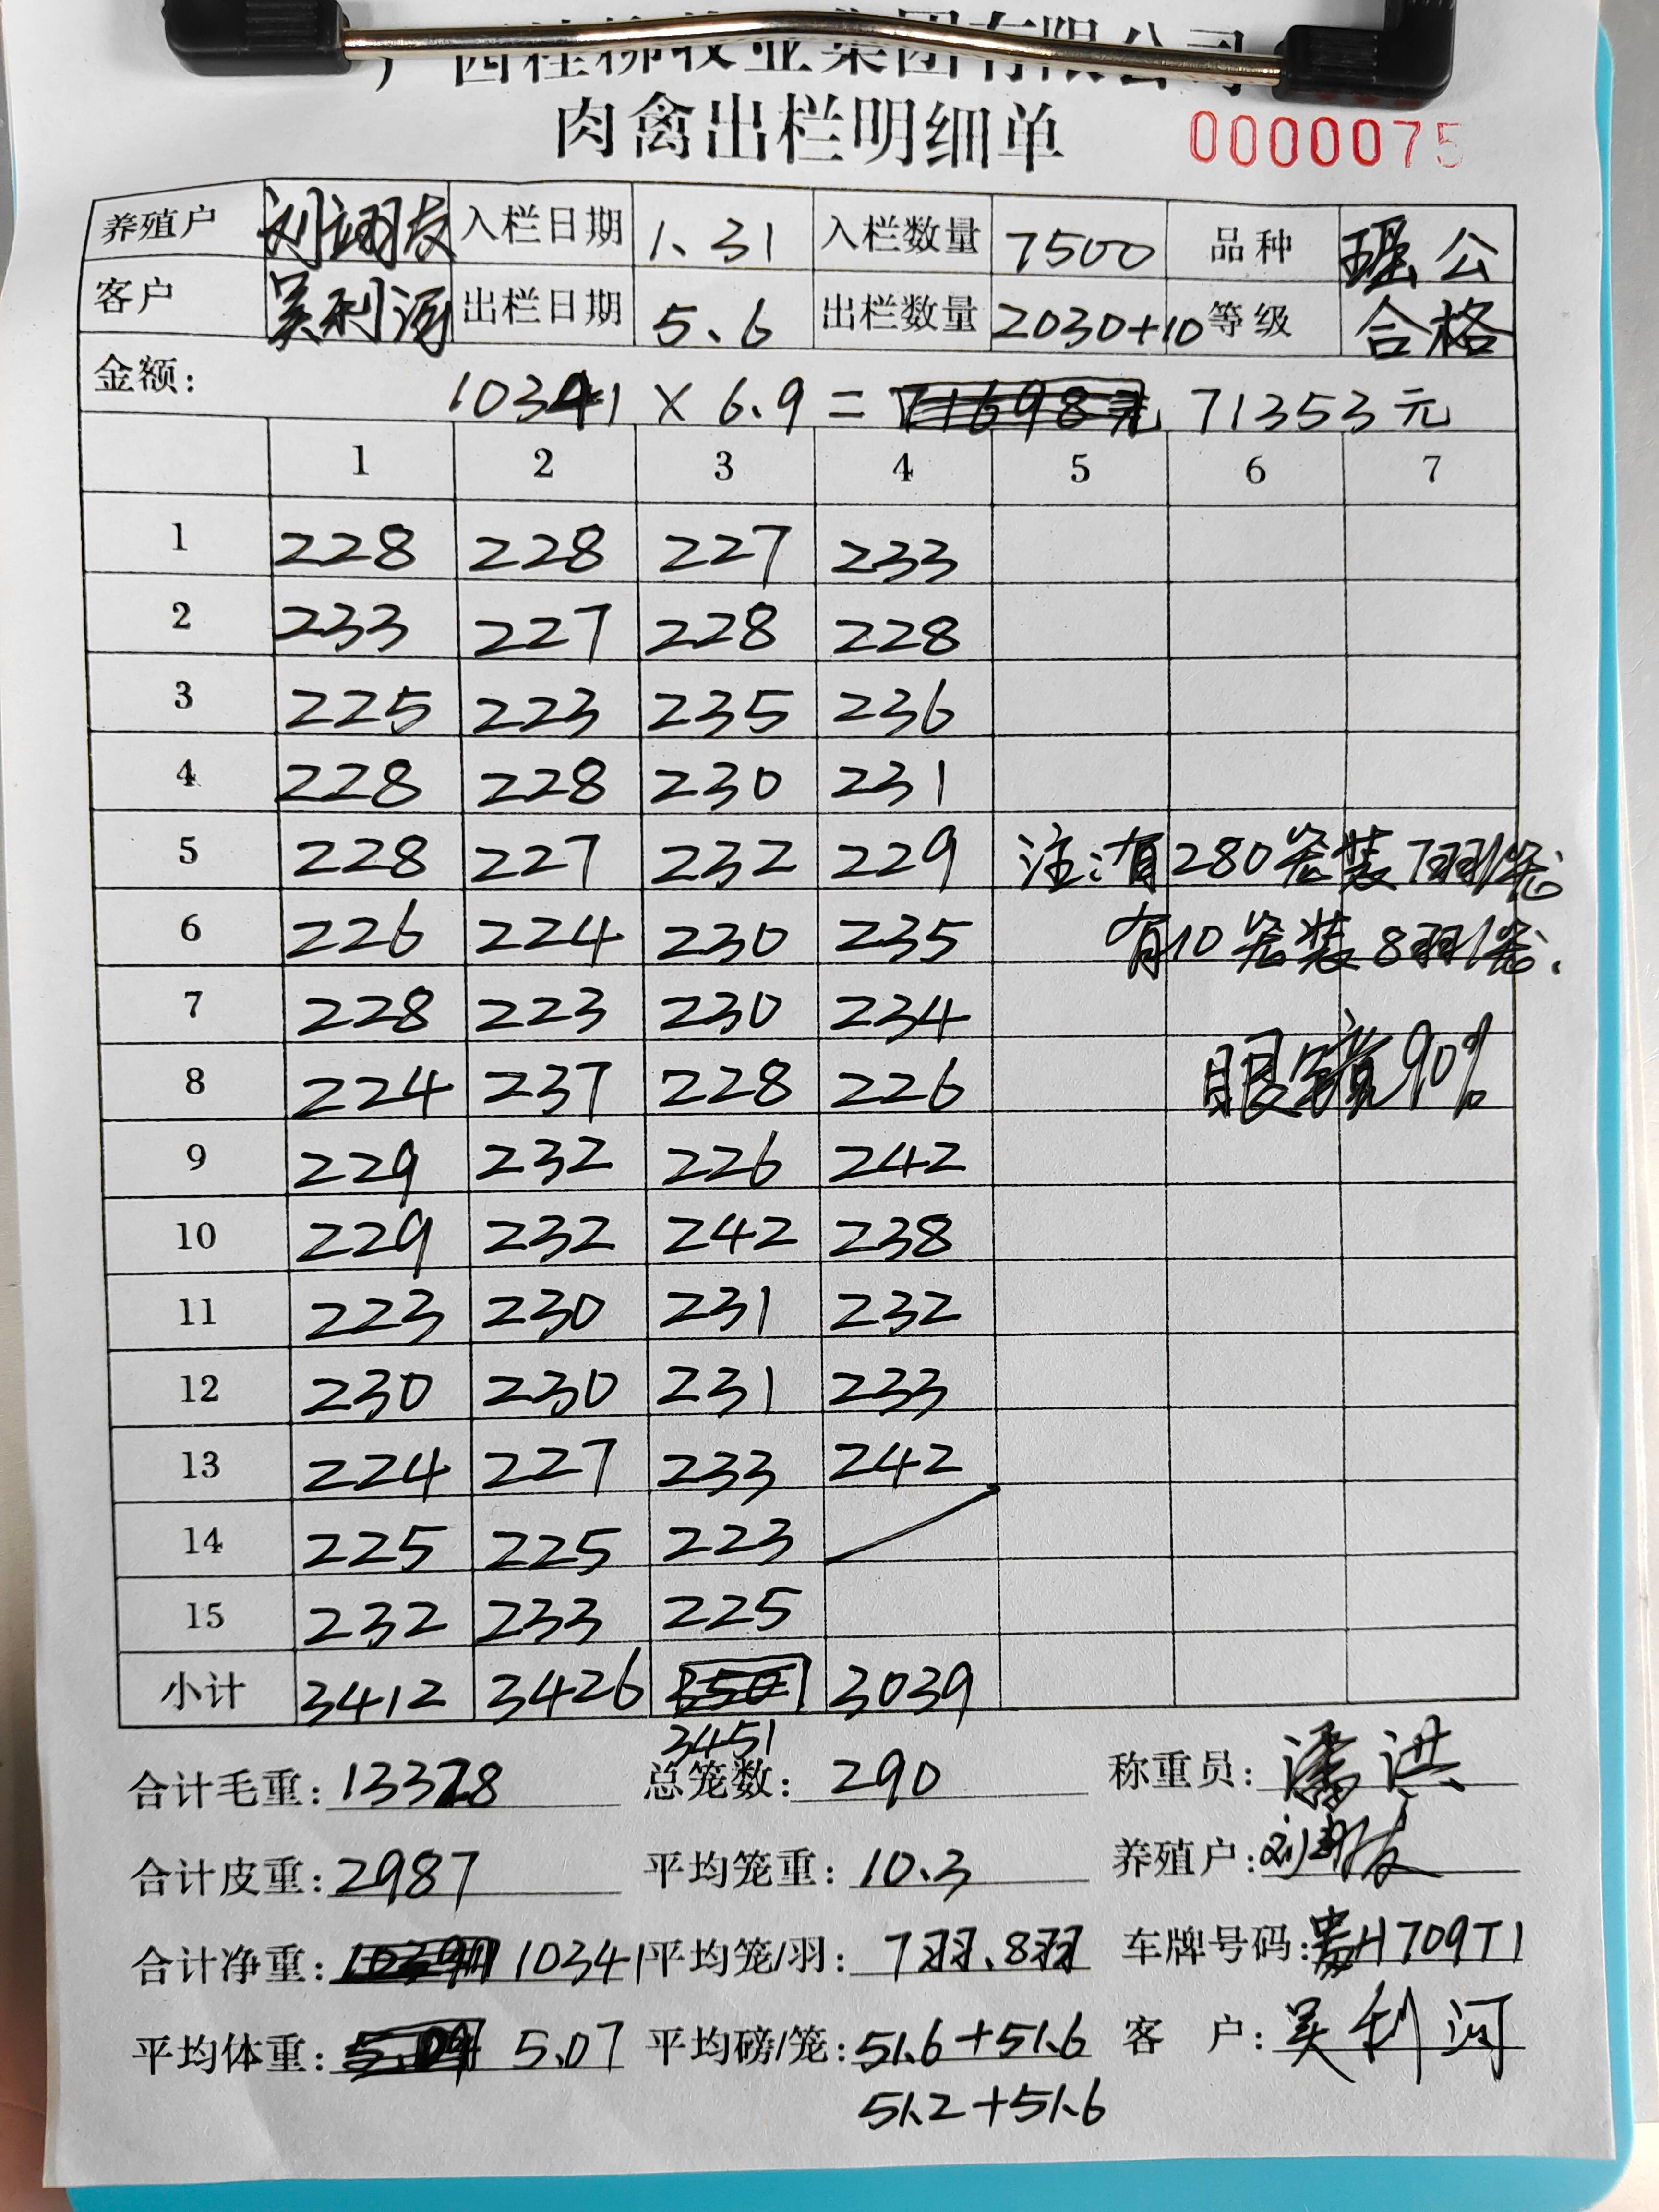 广西桂柳牧业集团有限公司
肉禽出栏明细单 0000075
养殖户 刘翊友 入栏日期 1.31 入栏数量 7500 品种 瑶公
客户 吴利河 出栏日期 5.6 出栏数量 2030+10 等级 合格
金额: 10341 × 6.9 = 71698元 71353元
1 2 3 4 5 6 7
1 228 228 227 233
2 233 227 228 228
3 225 223 235 236
4 228 228 230 231
5 228 227 232 229 注:有280笼装7羽/笼
6 226 224 230 235 有10笼装8羽/笼.
7 228 223 230 234
8 224 237 228 226 眼 90%
9 229 232 226 242
10 229 232 242 238
11 223 230 231 232
12 230 230 231 233
13 224 227 233 242
14 225 225 223
15 232 233 225
小计 3412 3426 3501 3039
3451
合计毛重: 13328 总笼数: 290 称重员: 潘洪
合计皮重: 2987 平均笼重: 10.3 养殖户: 刘翊友
合计净重: 10341 平均笼/羽: 7羽、8羽 车牌号码: 贵H709T1
平均体重: 5.09 5.07 平均磅/笼: 51.6+51.6 客 户: 吴利河
51.2+51.6